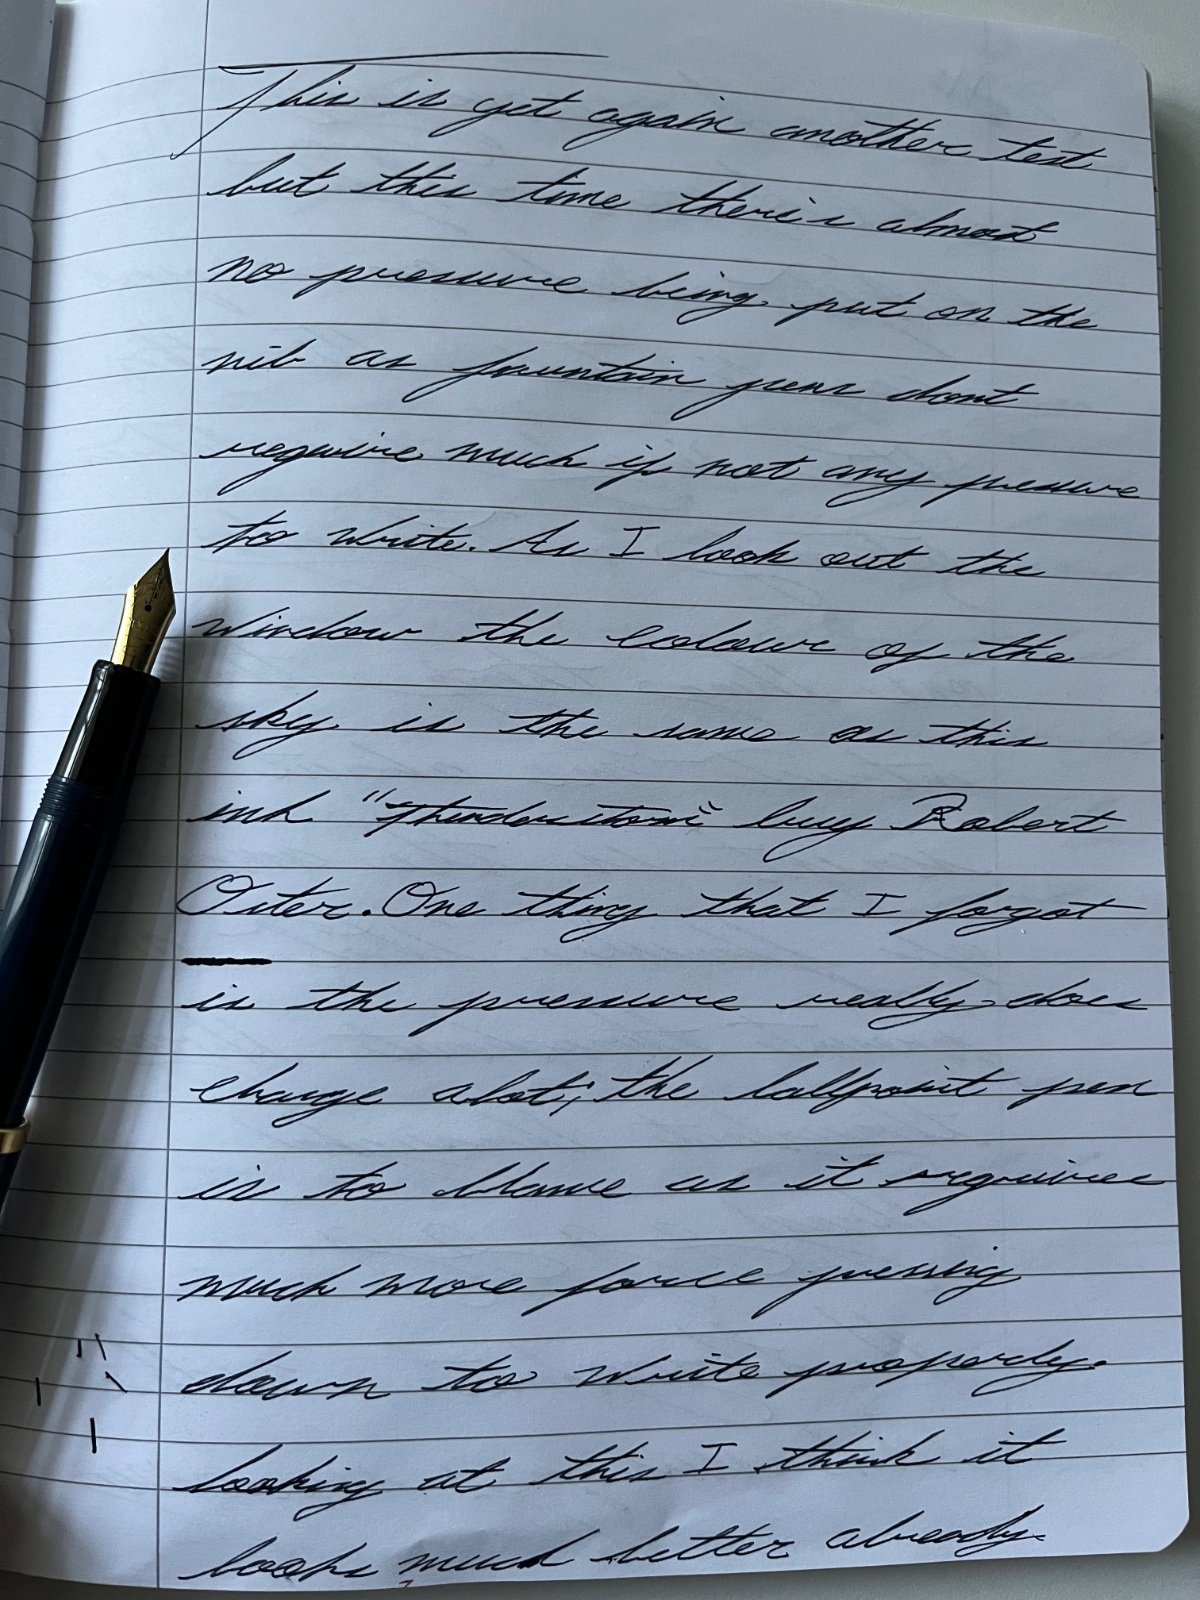 This is yet again another test
but this time there's almost
no pressure being put on the
nib as fountain pens dont
require much if not any pressure
to write. As I look out the
window the colour of the
sky is the same as this
ink "Thunderstorm" buy Robert
Oster. One thing that I forgot
is the pressure really does
change alot; the ballpoint pen
is to blame as it requires
much more force pressing
down to write properly.
looking at this I think it
looks much better already.